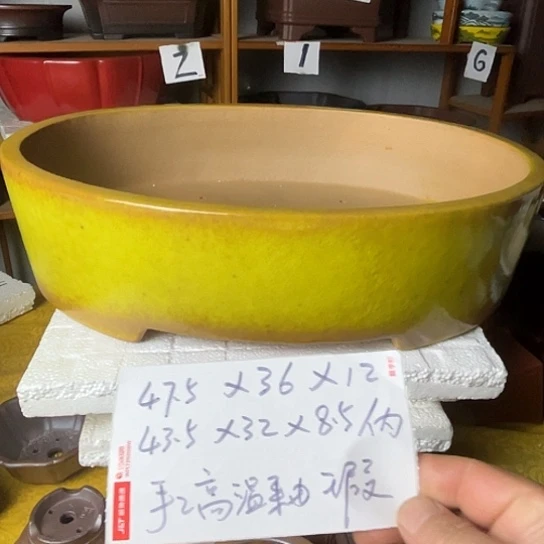 Z
1
6
47.5 x 36 x 12
43.5 x 32 x 8.5 内
手工高温釉
J&T